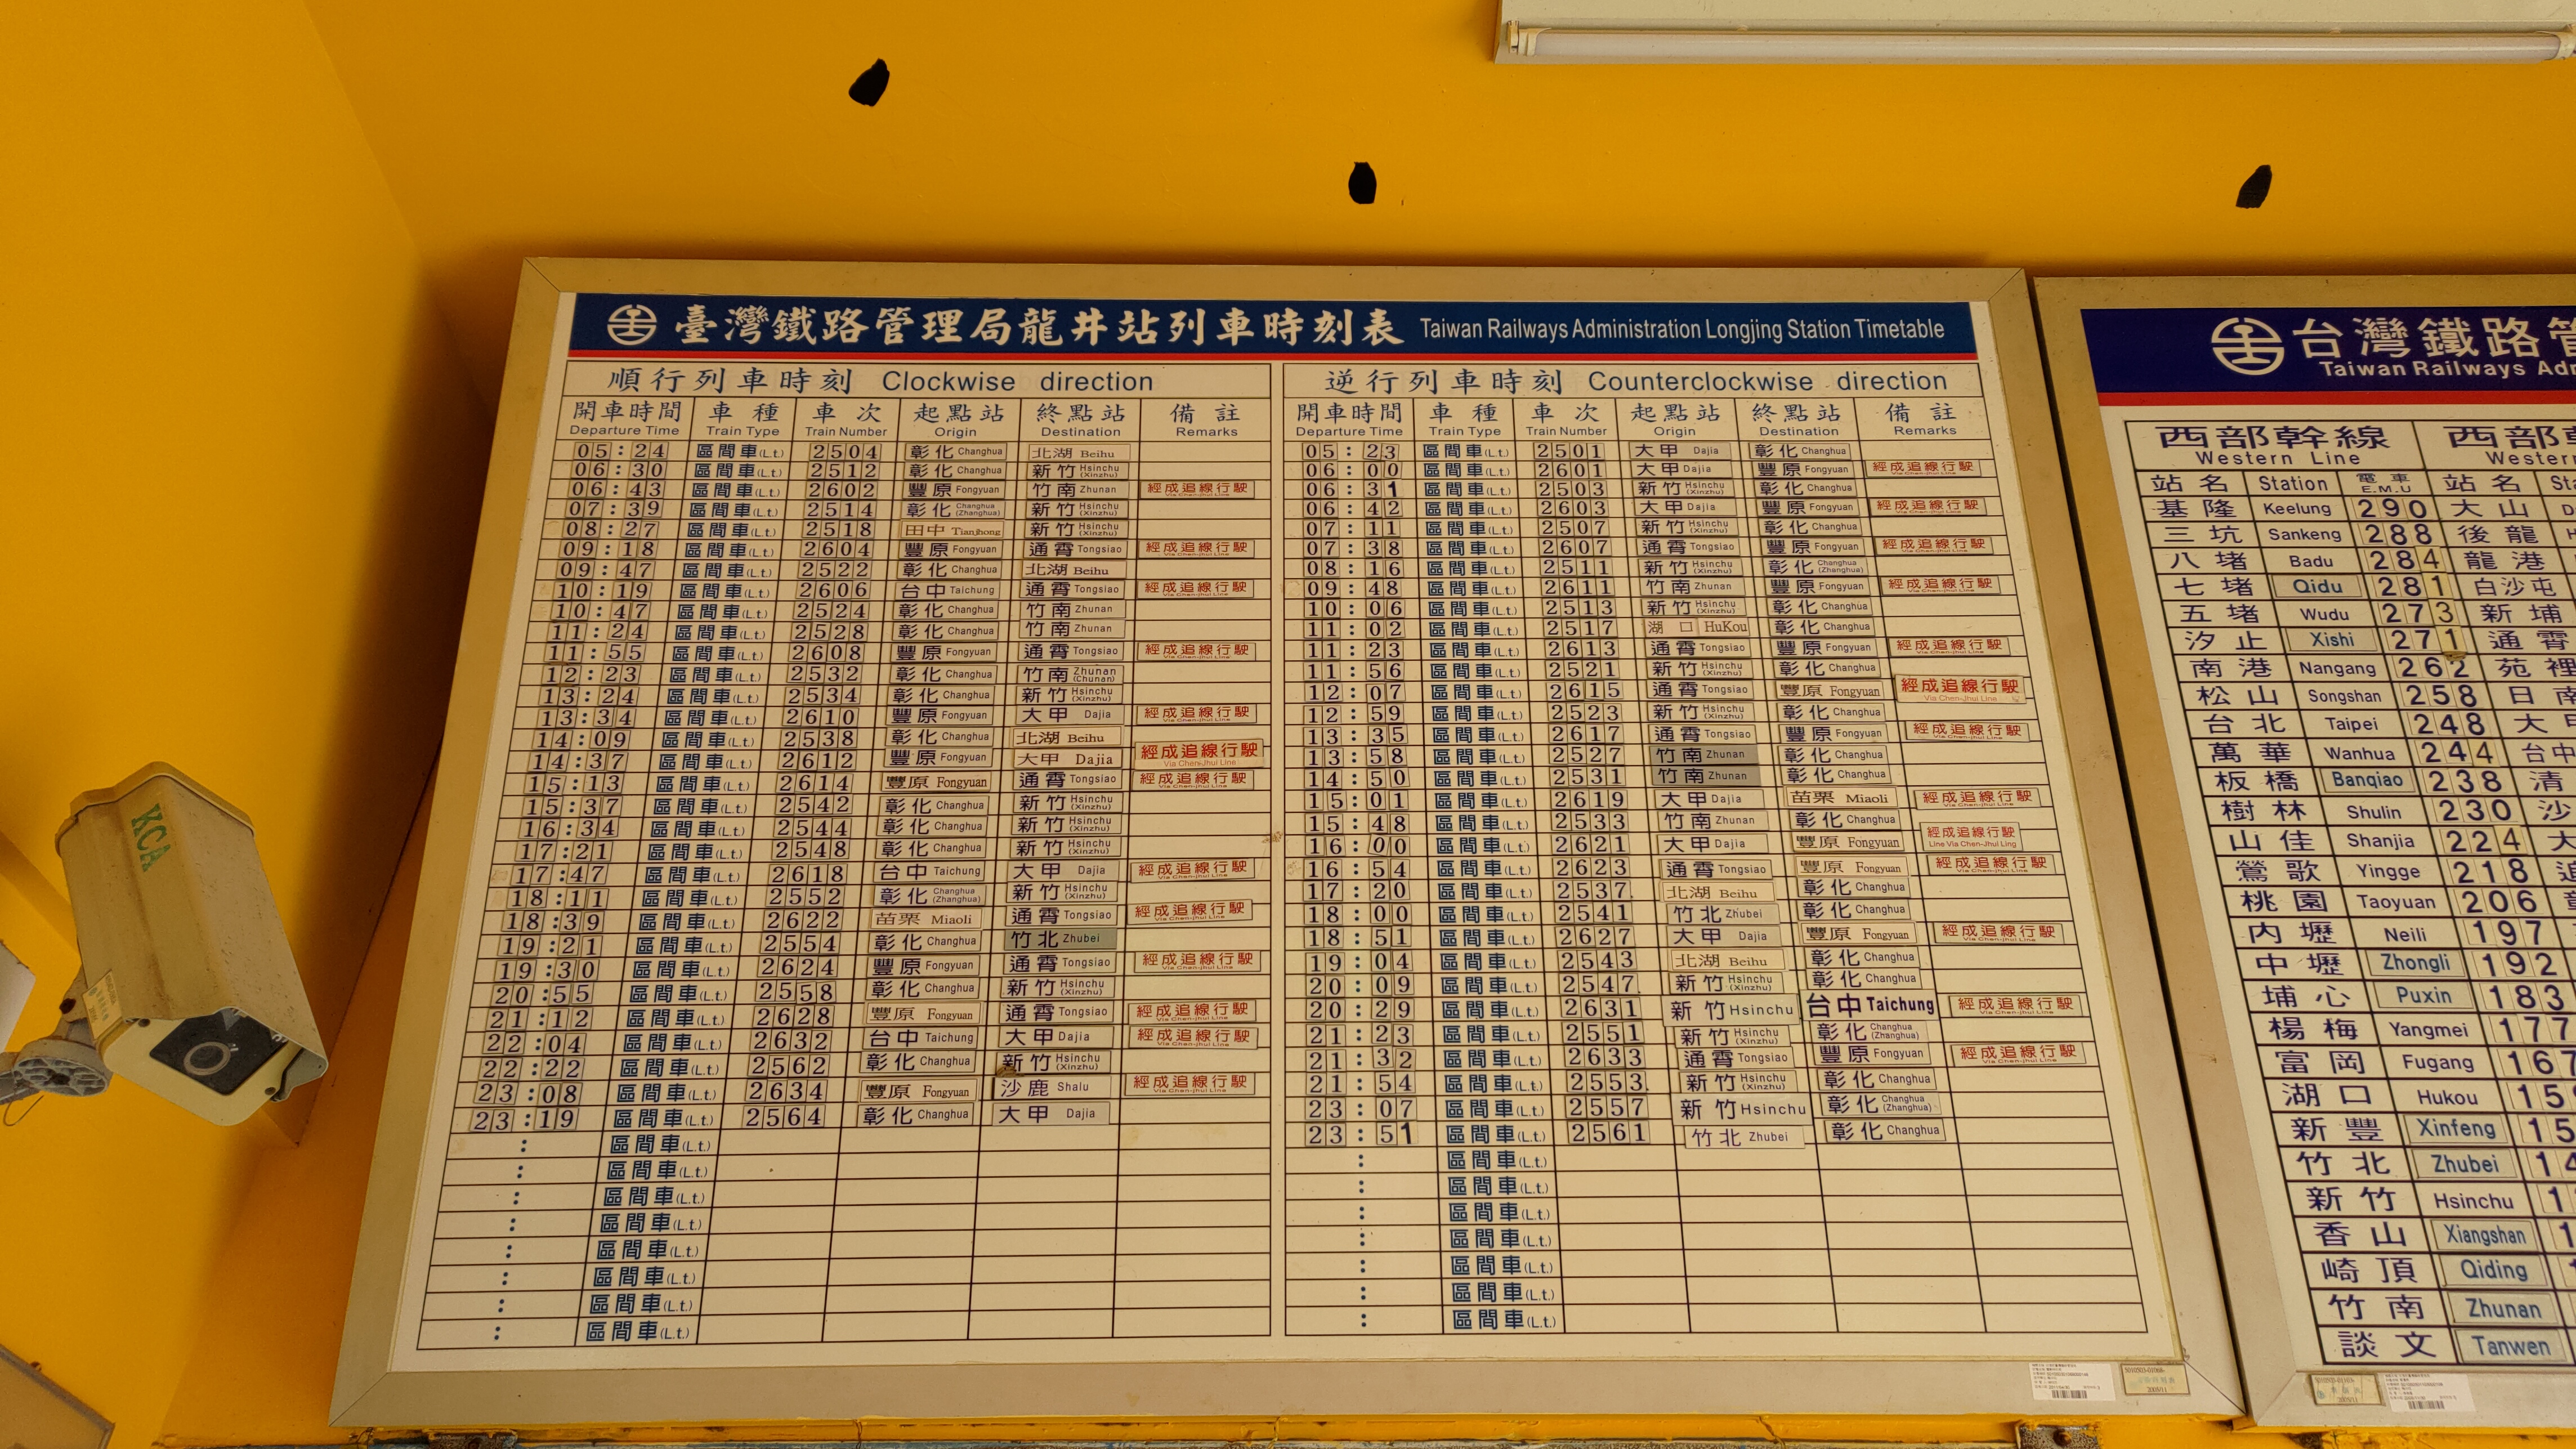 臺灣鐵路管理局龍井站列車時刻表 Taiwan Railways Administration Longjing Station Timetable
順行列車時刻 Clockwise direction
開車時間 車種 車次 起點站 終點站 備註
Departure Time Train Type Train Number Origin Destination Remarks
05:24 區間車(L.t.) 2504 彰化 Changhua 北湖 Beihu
06:30 區間車(L.t.) 2512 彰化 Changhua 新竹 Hsinchu (Xinzhu)
06:43 區間車(L.t.) 2602 豐原 Fongyuan 竹南 Zhunan 經成追線行駛 Via Chen-jhui Line
07:39 區間車(L.t.) 2514 彰化 Changhua (Zhanghua) 新竹 Hsinchu (Xinzhu)
08:27 區間車(L.t.) 2518 田中 Tianjhong 新竹 Hsinchu (Xinzhu)
09:18 區間車(L.t.) 2604 豐原 Fongyuan 通霄 Tongsiao 經成追線行駛 Via Chen-jhui Line
09:47 區間車(L.t.) 2522 彰化 Changhua 北湖 Beihu
10:19 區間車(L.t.) 2606 台中 Taichung 通霄 Tongsiao 經成追線行駛 Via Chen-jhui Line
10:47 區間車(L.t.) 2524 彰化 Changhua 竹南 Zhunan
11:24 區間車(L.t.) 2528 彰化 Changhua 竹南 Zhunan
11:55 區間車(L.t.) 2608 豐原 Fongyuan 通霄 Tongsiao 經成追線行駛 Via Chen-jhui Line
12:23 區間車(L.t.) 2532 彰化 Changhua 竹南 Zhunan (Chunan)
13:24 區間車(L.t.) 2534 彰化 Changhua 新竹 Hsinchu (Xinzhu)
13:34 區間車(L.t.) 2610 豐原 Fongyuan 大甲 Dajia 經成追線行駛 Via Chen-jhui Line
14:09 區間車(L.t.) 2538 彰化 Changhua 北湖 Beihu
14:37 區間車(L.t.) 2612 豐原 Fongyuan 大甲 Dajia 經成追線行駛 Via Chen-Jhui Line
15:13 區間車(L.t.) 2614 豐原 Fongyuan 通霄 Tongsiao 經成追線行駛 Via Chen-jhui Line
15:37 區間車(L.t.) 2542 彰化 Changhua 新竹 Hsinchu (Xinzhu)
16:34 區間車(L.t.) 2544 彰化 Changhua 新竹 Hsinchu (Xinzhu)
17:21 區間車(L.t.) 2548 彰化 Changhua 新竹 Hsinchu (Xinzhu)
17:47 區間車(L.t.) 2618 台中 Taichung 大甲 Dajia 經成追線行駛 Via Chen-jhui Line
18:11 區間車(L.t.) 2552 彰化 Changhua (Zhanghua) 新竹 Hsinchu (Xinzhu)
18:39 區間車(L.t.) 2622 苗栗 Miaoli 通霄 Tongsiao 經成追線行駛 Via Chen-jhui Line
19:21 區間車(L.t.) 2554 彰化 Changhua 竹北 Zhubei
19:30 區間車(L.t.) 2624 豐原 Fongyuan 通霄 Tongsiao 經成追線行駛 Via Chen-jhui Line
20:55 區間車(L.t.) 2558 彰化 Changhua 新竹 Hsinchu (Xinzhu)
21:12 區間車(L.t.) 2628 豐原 Fongyuan 通霄 Tongsiao 經成追線行駛 Via Chen-jhui Line
22:04 區間車(L.t.) 2632 台中 Taichung 大甲 Dajia 經成追線行駛 Via Chen-jhui Line
22:22 區間車(L.t.) 2562 彰化 Changhua 新竹 Hsinchu (Xinzhu)
23:08 區間車(L.t.) 2634 豐原 Fongyuan 沙鹿 Shalu 經成追線行駛 Via Chen-jhui Line
23:19 區間車(L.t.) 2564 彰化 Changhua 大甲 Dajia
: 區間車(L.t.)
: 區間車(L.t.)
: 區間車(L.t.)
: 區間車(L.t.)
: 區間車(L.t.)
: 區間車(L.t.)
: 區間車(L.t.)
: 區間車(L.t.)
逆行列車時刻 Counterclockwise direction
開車時間 車種 車次 起點站 終點站 備註
Departure Time Train Type Train Number Origin Destination Remarks
05:23 區間車(L.t.) 2501 大甲 Dajia 彰化 Changhua
06:00 區間車(L.t.) 2601 大甲 Dajia 豐原 Fongyuan 經成追線行駛 Via Chen-jhui Line
06:31 區間車(L.t.) 2503 新竹 Hsinchu (Xinzhu) 彰化 Changhua
06:42 區間車(L.t.) 2603 大甲 Dajia 豐原 Fongyuan 經成追線行駛 Via Chen-jhui Line
07:11 區間車(L.t.) 2507 新竹 Hsinchu (Xinzhu) 彰化 Changhua
07:38 區間車(L.t.) 2607 通霄 Tongsiao 豐原 Fongyuan 經成追線行駛 Via Chen-jhui Line
08:16 區間車(L.t.) 2511 新竹 Hsinchu (Xinzhu) 彰化 Changhua (Zhanghua)
09:48 區間車(L.t.) 2611 竹南 Zhunan 豐原 Fongyuan 經成追線行駛 Via Chen-jhui Line
10:06 區間車(L.t.) 2513 新竹 Hsinchu (Xinzhu) 彰化 Changhua
11:02 區間車(L.t.) 2517 湖口 HuKou 彰化 Changhua
11:23 區間車(L.t.) 2613 通霄 Tongsiao 豐原 Fongyuan 經成追線行駛 Via Chen-jhui Line
11:56 區間車(L.t.) 2521 新竹 Hsinchu (Xinzhu) 彰化 Changhua
12:07 區間車(L.t.) 2615 通霄 Tongsiao 豐原 Fongyuan 經成追線行駛 Via Chen-Jhui Line
12:59 區間車(L.t.) 2523 新竹 Hsinchu (Xinzhu) 彰化 Changhua
13:35 區間車(L.t.) 2617 通霄 Tongsiao 豐原 Fongyuan 經成追線行駛 Via Chen-jhui Line
13:58 區間車(L.t.) 2527 竹南 Zhunan 彰化 Changhua
14:50 區間車(L.t.) 2531 竹南 Zhunan 彰化 Changhua
15:01 區間車(L.t.) 2619 大甲 Dajia 苗栗 Miaoli 經成追線行駛 Via Chen-jhui Line
15:48 區間車(L.t.) 2533 竹南 Zhunan 彰化 Changhua
16:00 區間車(L.t.) 2621 大甲 Dajia 豐原 Fongyuan 經成追線行駛 Line Via Chen-Jhui Ling
16:54 區間車(L.t.) 2623 通霄 Tongsiao 豐原 Fongyuan 經成追線行駛 Via Chen-jhui Line
17:20 區間車(L.t.) 2537. 北湖 Beihu 彰化 Changhua
18:00 區間車(L.t.) 2541 竹北 Zhubei 彰化 Changhua
18:51 區間車(L.t.) 2627 大甲 Dajia 豐原 Fongyuan 經成追線行駛 Via Chen-jhui Line
19:04 區間車(L.t.) 2543 北湖 Beihu 彰化 Changhua
20:09 區間車(L.t.) 2547. 新竹 Hsinchu (Xinzhu) 彰化 Changhua
20:29 區間車(L.t.) 2631 新竹 Hsinchu 台中 Taichung 經成追線行駛 Via Chen-jhui Line
21:23 區間車(L.t.) 2551 新竹 Hsinchu (Xinzhu) 彰化 Changhua (Zhanghua)
21:32 區間車(L.t.) 2633 通霄 Tongsiao 豐原 Fongyuan 經成追線行駛 Via Chen-jhui Line
21:54 區間車(L.t.) 2553. 新竹 Hsinchu (Xinzhu) 彰化 Changhua
23:07 區間車(L.t.) 2557 新竹 Hsinchu 彰化 Changhua (Zhanghua)
23:51 區間車(L.t.) 2561 竹北 Zhubei 彰化 Changhua
: 區間車(L.t.)
: 區間車(L.t.)
: 區間車(L.t.)
: 區間車(L.t.)
: 區間車(L.t.)
: 區間車(L.t.)
: 區間車(L.t.)
台灣鐵路
Taiwan Railways
西部幹線 西部
Western Line Western
站名 Station 電車 E.M.U 站名
基隆 Keelung 290 大山
三坑 Sankeng 288 後龍
八堵 Badu 284 龍港
七堵 Qidu 281 白沙屯
五堵 Wudu 273 新埔
汐止 Xishi 271 通霄
南港 Nangang 262 苑裡
松山 Songshan 258 日南
台北 Taipei 248 大
萬華 Wanhua 244 台中
板橋 Banqiao 238 清
樹林 Shulin 230 沙
山佳 Shanjia 224 大
鶯歌 Yingge 218 追
桃園 Taoyuan 206
內壢 Neili 197
中壢 Zhongli 192
埔心 Puxin 183
楊梅 Yangmei 177
富岡 Fugang 167
湖口 Hukou 15
新豐 Xinfeng 15
竹北 Zhubei 14
新竹 Hsinchu 1
香山 Xiangshan 1
崎頂 Qiding
竹南 Zhunan
談文 Tanwen
KCA